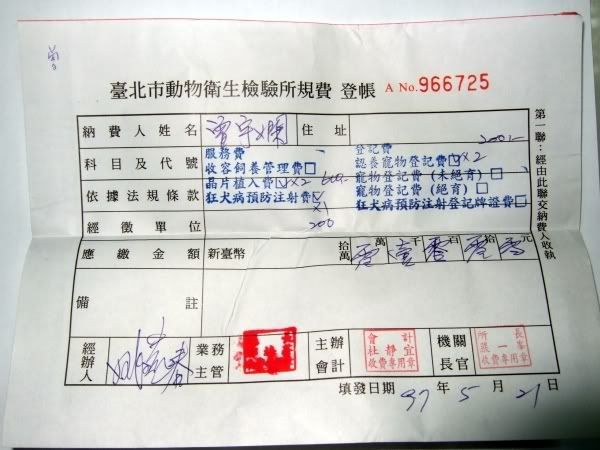 曾
臺北市動物衛生檢驗所規費 登帳 A No.966725
納費人姓名 曾宇嫻 住址
科目及代號 服務費 登記費 200-
收容飼養管理費□ 認養寵物登記費☑×2
依據法規條款 晶片植入費☑×2 600- 寵物登記費(未絕育)□
寵物登記費(絕育)□
狂犬病預防注射費☑ 狂犬病預防注射登記牌證費□
×1
經徵單位 200
應繳金額 新臺幣 拾萬 零萬 壹千 零百 零拾 零元
備註
經辦人 業務主管 主辦會計 會計 杜靜宜 收費專用章 機關長官 所長 張一峯 收費專用章
填發日期 97年5月21日
第一聯：經由此聯交納費人收執